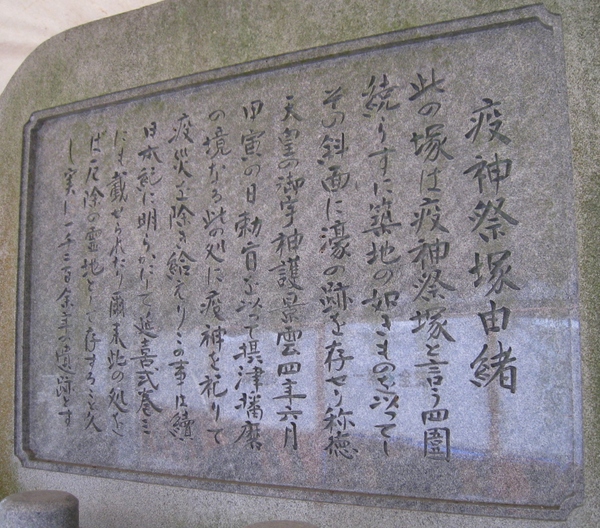 疫神祭塚由緒
此の塚は疫神祭塚と言う四囲
続らすに築地の如きものを以ってし
その斜面に濠の跡を存せり称徳
天皇の御宇神護景雲四年六月
甲寅の日勅旨を以って摂津播磨
の境なる此の処に疫神を祀りて
疫災を除き給えりこの事は続
日本紀に明らかにして延喜式巻三
にも載せられたり爾来此の処を
ば厄除の霊地として存すること久
し実に一千二百余年の遺跡とす